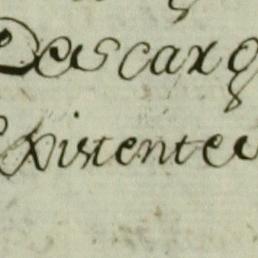 Descarg
Existentes